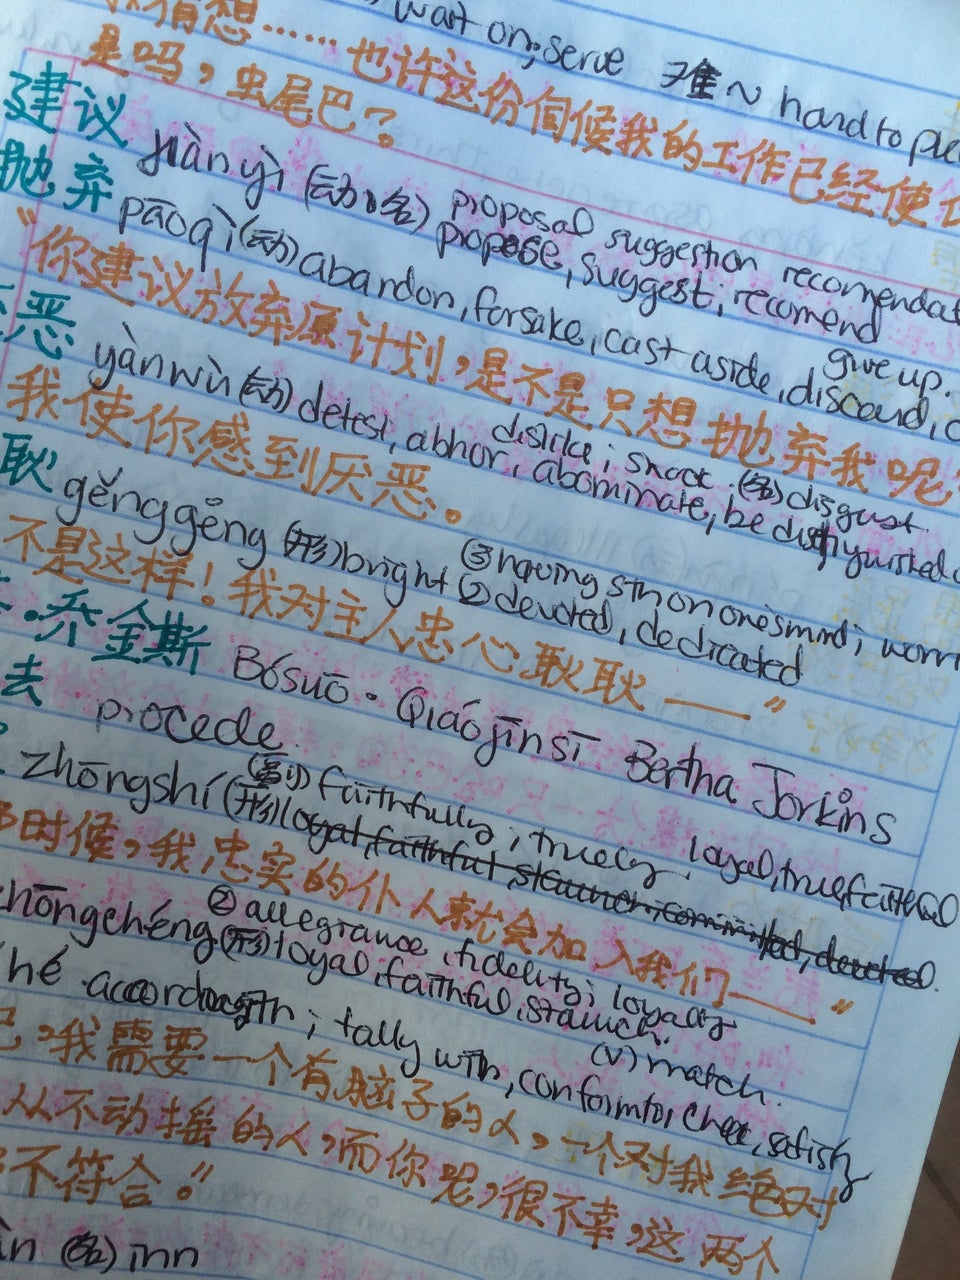 wait on; serve 难~ hard to
猜想……也许这份伺候我的工作已经使
是吗，虫尾巴？
建议 jiàn yì (动、名) proposal suggestion recomendat
propose, suggest; recomend
抛弃 pāoqì (动) abandon, forsake, cast aside, discard,
give up.
“你建议放弃原计划，是不是只想抛弃我呢
恶 yànwù (动) detest, abhor, abominate, be
dislike; (名) disgust.
我使你感到厌恶。
耿 gěnggěng (形) bright ② devoted, dedicated
③ having sth on one's mind; worr
不是这样！我对主人忠心耿耿——”
·乔金斯 Bósuō·Qiáojīnsī Bertha Jorkins
去 procede.
zhōngshí (形) loyal, faithful, staunch, committed, devoted.
(副) faithfully; truely loyal, true, faithful
时候，我忠实的仆人就会加入我们——”
hōngchéng (形) loyal, faithful, staunch.
② allegrance, fidelity; loyalty
hé accord with; tally with, conform to
(v) match.
我需要一个有脑子的人，一个对我绝对
从不动摇的人，而你呢，很不幸，这两个
不符合。”
(名) inn